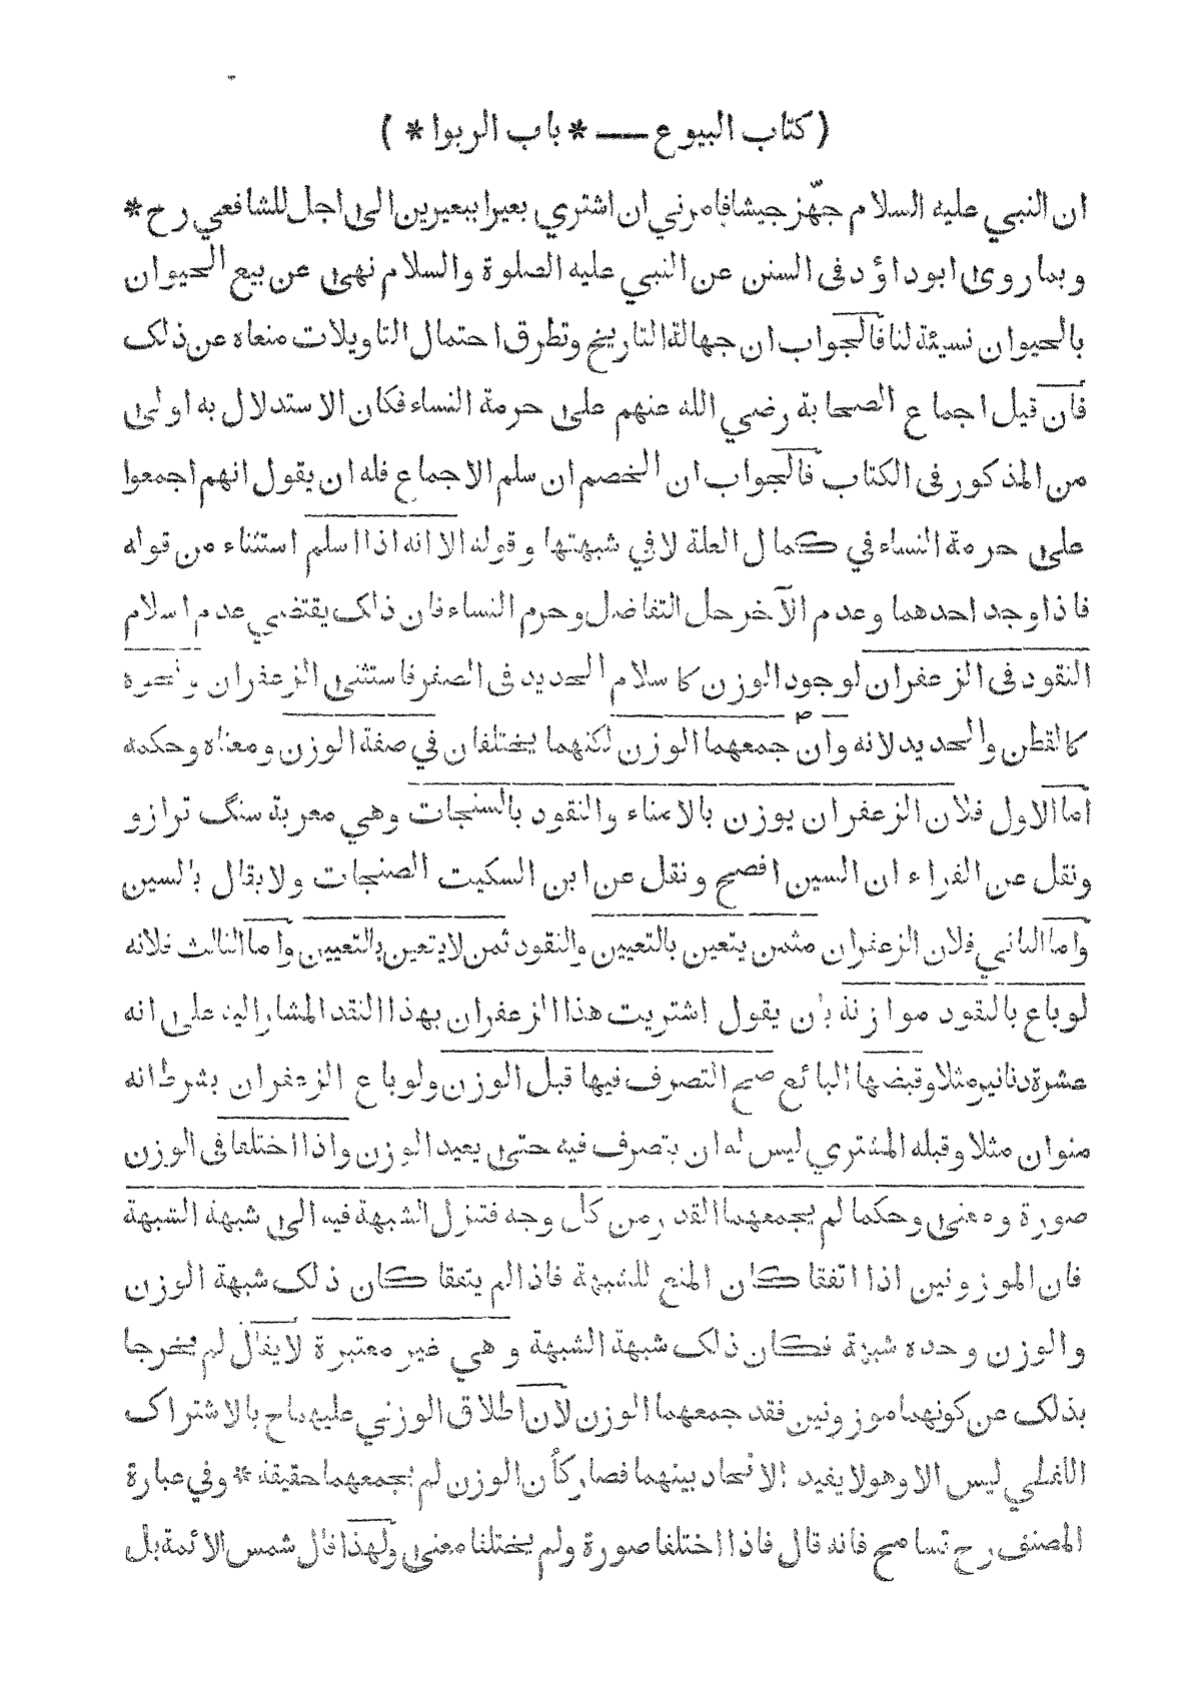 ( كتاب البيوع — * باب الربوا * )
ان النبي عليه السلام جهّز جيشا فامرني ان اشتري بعيرا ببعيرين الى اجل للشافعي رح *
وبما روى ابو داؤد فى السنن عن النبي عليه الصلوة والسلام نهى عن بيع الحيوان
بالحيوان نسيئة لنا فالجواب ان جهالة التاريخ وتطرق احتمال التاويلات منعاه عن ذلك
فان قيل اجماع الصحابة رضي الله عنهم على حرمة النساء فكان الاستدلال به اولى
من المذكور فى الكتاب فالجواب ان الخصم ان سلم الاجماع فله ان يقول انهم اجمعوا
على حرمة النساء في كمال العلة لا في شبهتها وقوله الا انه اذا اسلم استثناء من قوله
فاذا وجد احدهما وعدم الآخر حل التفاضل وحرم النساء فان ذلك يقتضي عدم اسلام
النقود فى الزعفران لوجود الوزن كاسلام الحديد فى الصفر فاستثنى الزعفران ونحوه
كالقطن والحديد لانه وان جمعهما الوزن لكنهما يختلفان في صفة الوزن ومعناه وحكمه
اما الاول فلان الزعفران يوزن بالامناء والنقود بالسنجات وهي معربة سنگ ترازو
ونقل عن الفراء ان السين افصح ونقل عن ابن السكيت الصنجات ولا يقال بالسين
واما الثاني فلان الزعفران مثمن يتعين بالتعيين والنقود ثمن لا يتعين بالتعيين واما الثالث فلانه
لو باع بالنقود موازنة بان يقول اشتريت هذا الزعفران بهذا النقد المشار اليه على انه
عشرة دنانير مثلا وقبضها البائع صح التصرف فيها قبل الوزن ولو باع الزعفران بشرط انه
منوان مثلا وقبله المشتري ليس له ان يتصرف فيه حتى يعيد الوزن واذا اختلفا فى الوزن
صورة ومعنى وحكما لم يجمعهما القدر من كل وجه فتنزل الشبهة فيه الى شبهة الشبهة
فان الموزونين اذا اتفقا كان المنع للشبهة فاذا لم يتفقا كان ذلك شبهة الوزن
والوزن وحده شبهة فكان ذلك شبهة الشبهة وهي غير معتبرة لا يقال لم يخرجا
بذلك عن كونهما موزونين فقد جمعهما الوزن لان اطلاق الوزني عليهما ح بالاشتراك
اللفظي ليس الا وهو لا يفيد الاتحاد بينهما فصار كأن الوزن لم يجمعهما حقيقة * وفي عبارة
المصنف رح تسامح فانه قال فاذا اختلفا صورة ولم يختلفا معنى ولهذا قال شمس الائمة بل